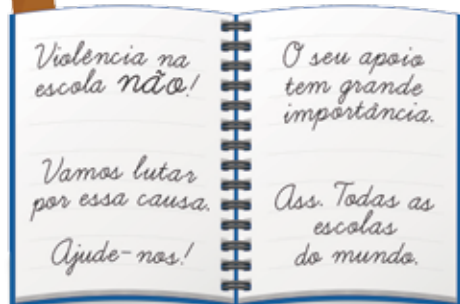 Violência na
escola não!
Vamos lutar
por essa causa.
Ajude-nos!
O seu apoio
tem grande
importância.
Ass. Todas as
escolas
do mundo.